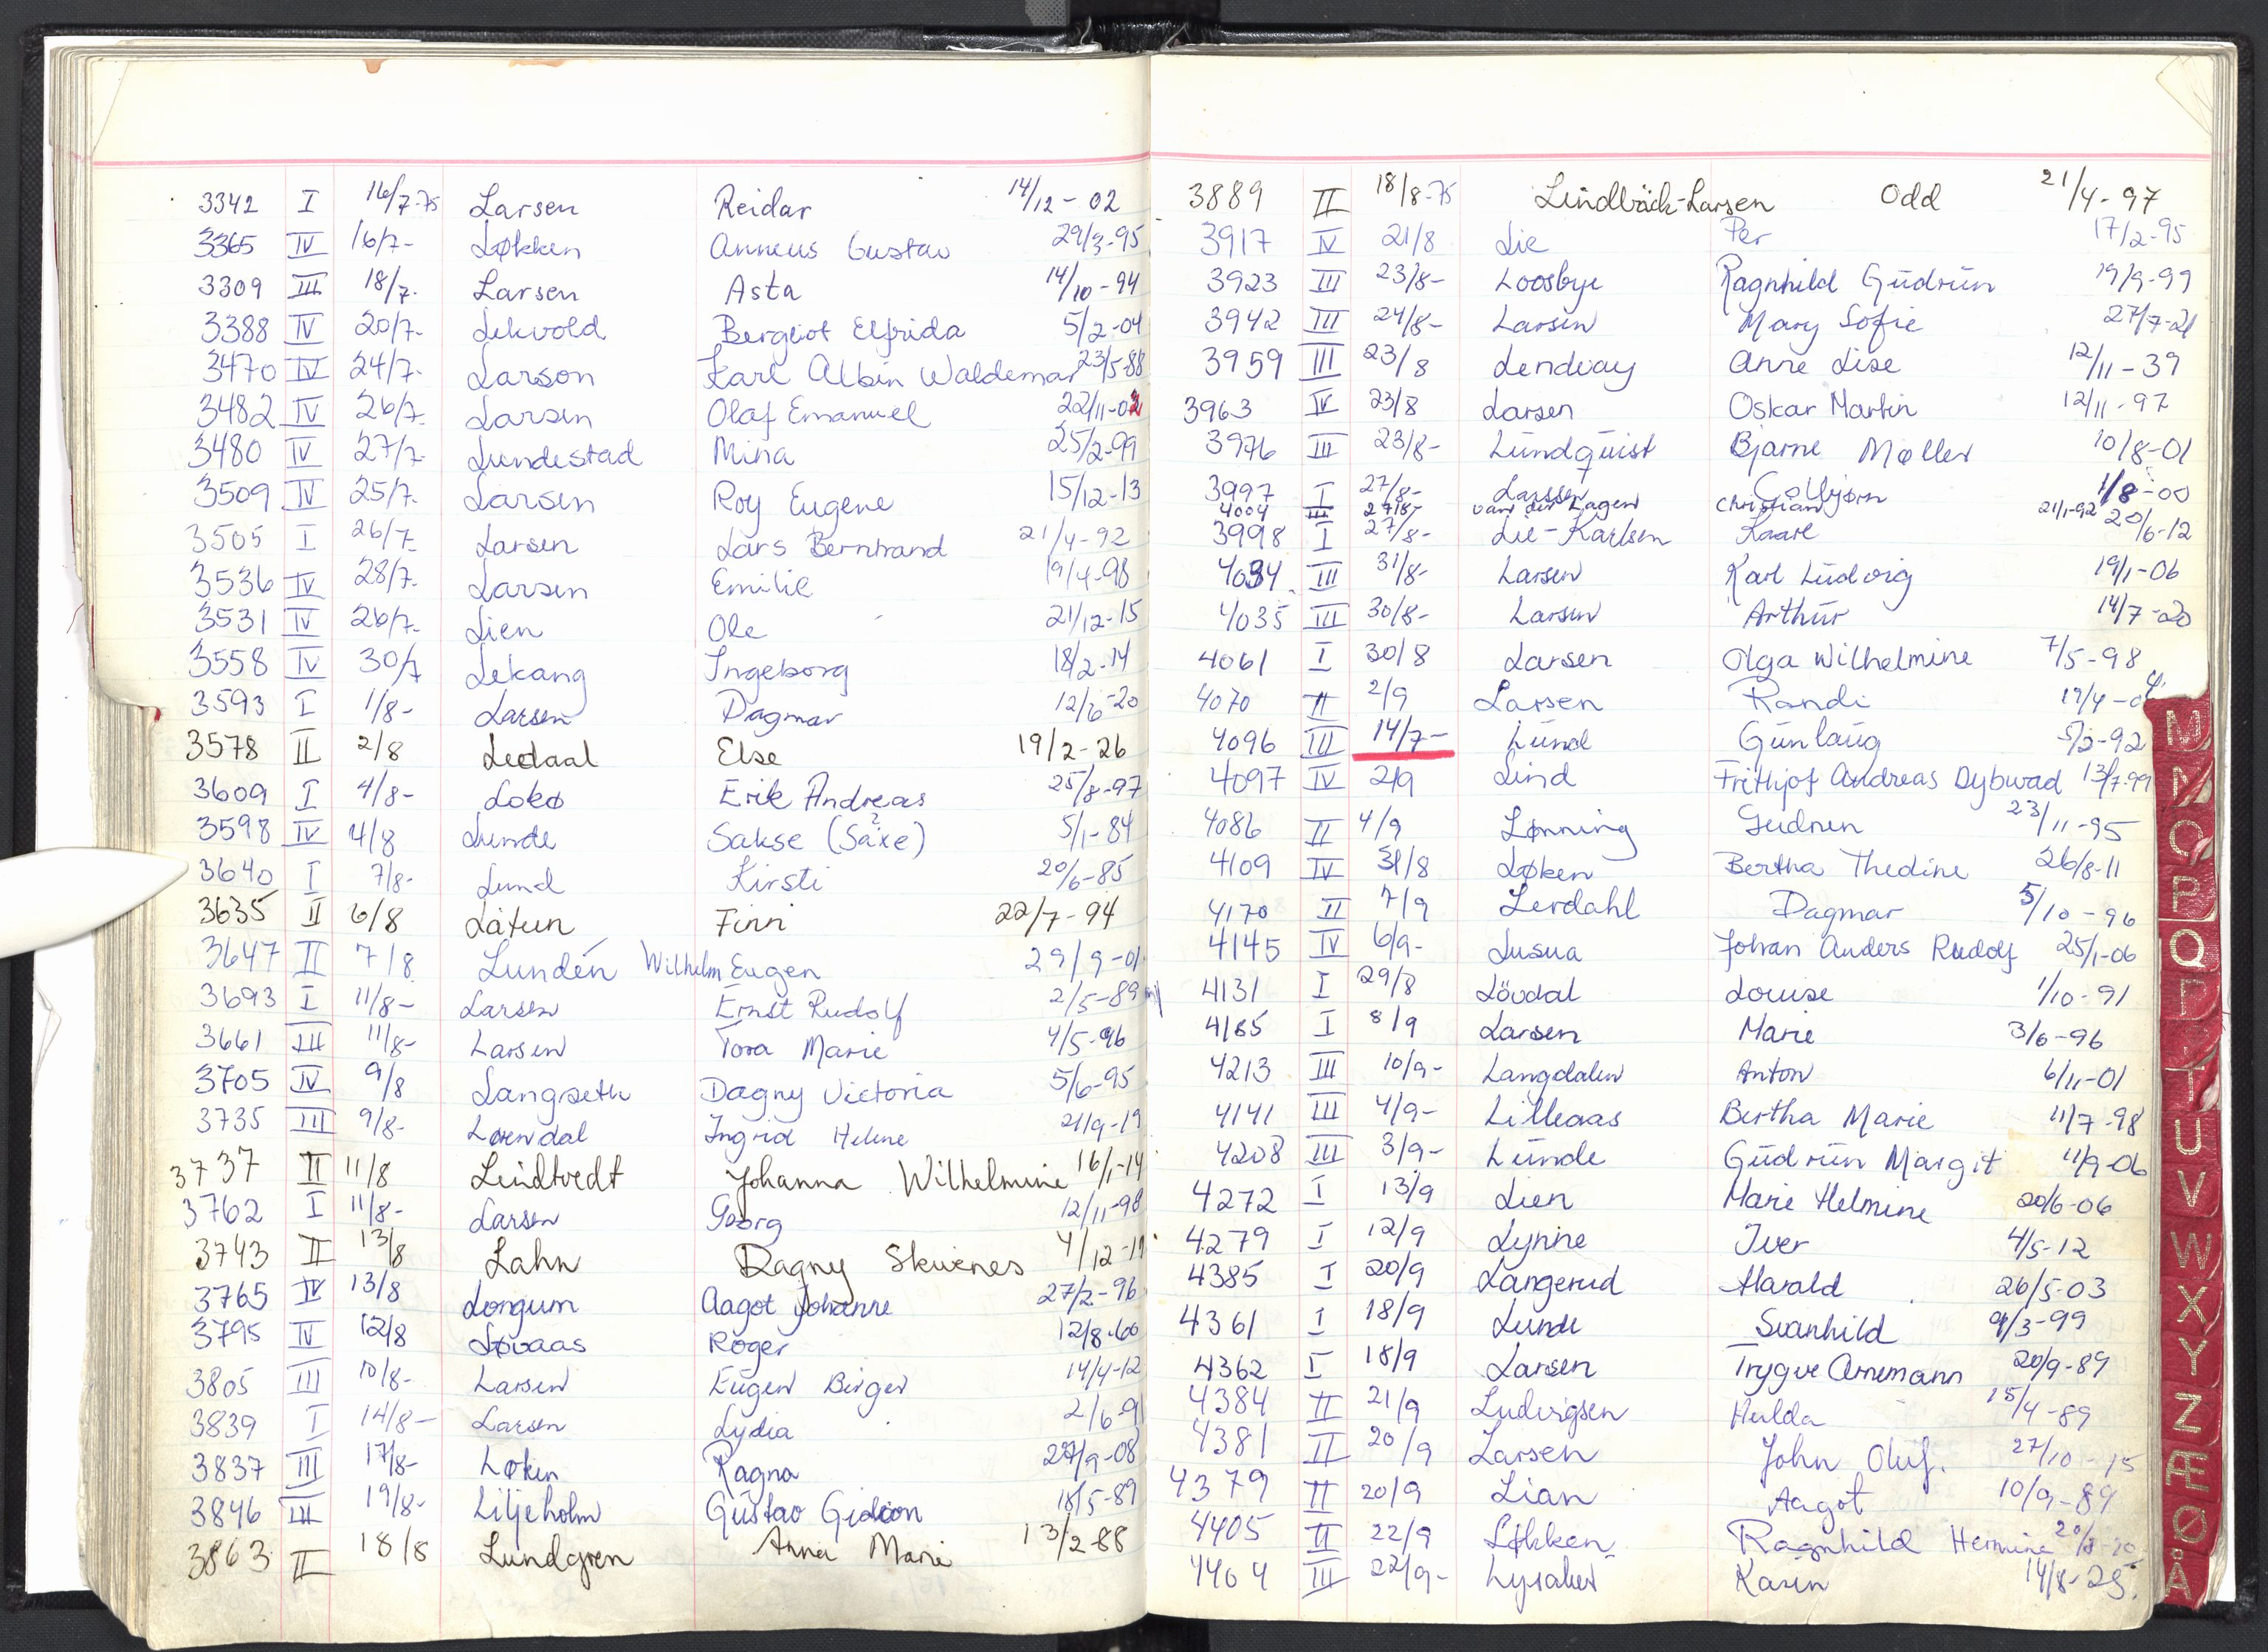 3342 I 16/7-75 Larsen Reidar 14/12-02
3365 IV 16/7- Løkken Anneus Gustav 29/3-95
3309 III 18/7- Larsen Asta 14/10-94
3388 IV 20/7- Lekvold Bergliot Elfrida 5/2-04
3470 IV 24/7- Larson Karl Albin Waldemar 23/5-88
3482 IV 26/7- Larsen Olaf Emanuel 22/11-02
3480 IV 27/7- Lundestad Mina 25/2-99
3509 IV 25/7- Larsen Roy Eugene 15/12-13
3505 I 26/7- Larsen Lars Berntrand 21/4-92
3536 IV 28/7- Larsen Emilie 19/4-98
3531 IV 26/7- Lien Ole 21/12-15
3558 IV 30/7 Lekang Ingeborg 18/2-14
3593 I 1/8- Larsen Dagmar 12/6-20
3578 II 2/8 Ledaal Else 19/2-26
3609 I 4/8- Lokø Erik Andreas 25/8-97
3598 IV 4/8 Lunde Sakse (Saxe)? 5/1-84
3640 I 7/8- Lund Kirsti 20/6-85
3635 II 6/8 Låtun Finn 22/7-94
3647 II 7/8 Lundén Wilhelm Eugen 29/9-01
3693 I 11/8- Larsen Ernst Rudolf 2/5-89
3661 III 11/8- Larsen Tora Marie 4/5-96
3705 IV 9/8 Langseth Dagny Victoria 5/6-95
3735 III 9/8- Løvendal Ingrid Helene 21/9-19
3737 II 11/8 Lindtvedt Johanna Wilhelmine 16/1-14
3762 I 11/8- Larsen Georg 12/11-98
3743 II 13/8 Lahn Dagny Skuenes 4/12-19
3765 IV 13/8 Longum Aagot Johanne 27/2-96
3795 IV 12/8 Løvaas Roger 12/8-60
3805 III 10/8- Larsen Eugen Birger 14/4-12
3839 I 14/8- Larsen Lydia 2/6-91
3837 III 17/8- Løken Ragna 29/9-08
3846 III 19/8- Liljeholm Gustav Gideon 18/5-89
3863 II 18/8 Lundgren Anna Marie 13/2-88
3889 II 18/8-75 Lindbäck-Larsen Odd 21/4-97
3917 IV 21/8 Lie Per 17/2-95
3923 III 23/8- Loosbye Ragnhild Gudrun 19/9-99
3942 III 24/8- Larsen Mary Sofie 27/7-21
3959 III 23/8 Lendvay Anne Lise 12/11-39
3963 IV 23/8 Larsen Oskar Martin 12/11-97
3976 III 23/8- Lundquist Bjarne Møller 10/8-01
3997 I 27/8- Larssen Colbjørn 1/8-00
4004 III 27/8- van der Lagen Christian 21/1-92
3998 I 27/8- Lie-Karlsen Kaare 20/6-12
4034 III 31/8- Larsen Karl Ludvig 19/1-06
4035 III 30/8- Larsen Arthur 14/7-20
4061 I 30/8 Larsen Olga Wilhelmine 7/5-98
4070 II 2/9 Larsen Randi 19/4-04
4096 III 14/7- Lund Gunlaug 5/2-92
4097 IV 2/9 Lind Frithjof Andreas Dybwad 13/7-99
4086 II 4/9 Lønning Gudrun 23/11-95
4109 IV 31/8 Løken Bertha Thedine 26/8-11
4170 II 7/9 Lerdahl Dagmar 5/10-96
4145 IV 6/9- Lusua Johan Anders Rudolf 25/1-06
4131 I 29/8 Lövdal Louise 1/10-91
4185 I 8/9 Larsen Marie 3/6-96
4213 III 10/9- Langdalen Anton 6/11-01
4141 III 4/9- Lilleaas Bertha Marie 11/7-98
4208 III 3/9- Lunde Gudrun Margit 11/9-06
4272 I 13/9 Lien Marie Helmine 20/6-06
4279 I 12/9 Lynne Iver 4/5-12
4385 I 20/9 Langerud Harald 26/5-03
4361 I 18/9 Lunde Svanhild 9/3-99
4362 I 18/9 Larsen Trygve Arnemann 20/9-89
4384 II 21/9 Ludvigsen Hulda 15/4-89
4381 II 20/9 Larsen John Oluf. 27/10-15
4379 II 20/9 Lian Aagot 10/9-89
4405 II 22/9 Løkken Ragnhild Hermine
4404 III 22/9- Lysaker Karin 14/8-25.
M
N
O
P
Q
R
T
U
V
W
X
Y
Z
Æ
Ø
Å